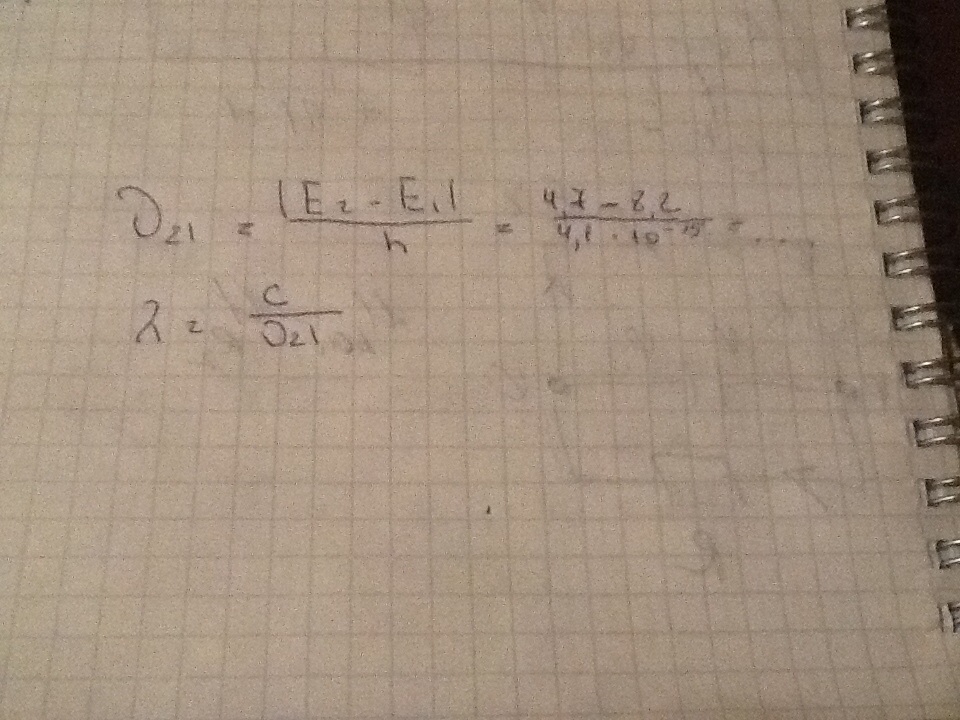 ν₂₁ = |E₂ - E₁| / h = 4,7 - 8,2 / 4,1 · 10⁻¹⁵ = ...,
λ = c / ν₂₁